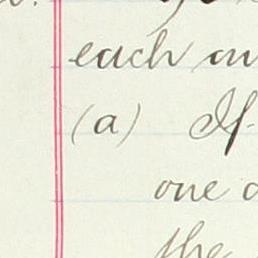 each
(a) If
one
the